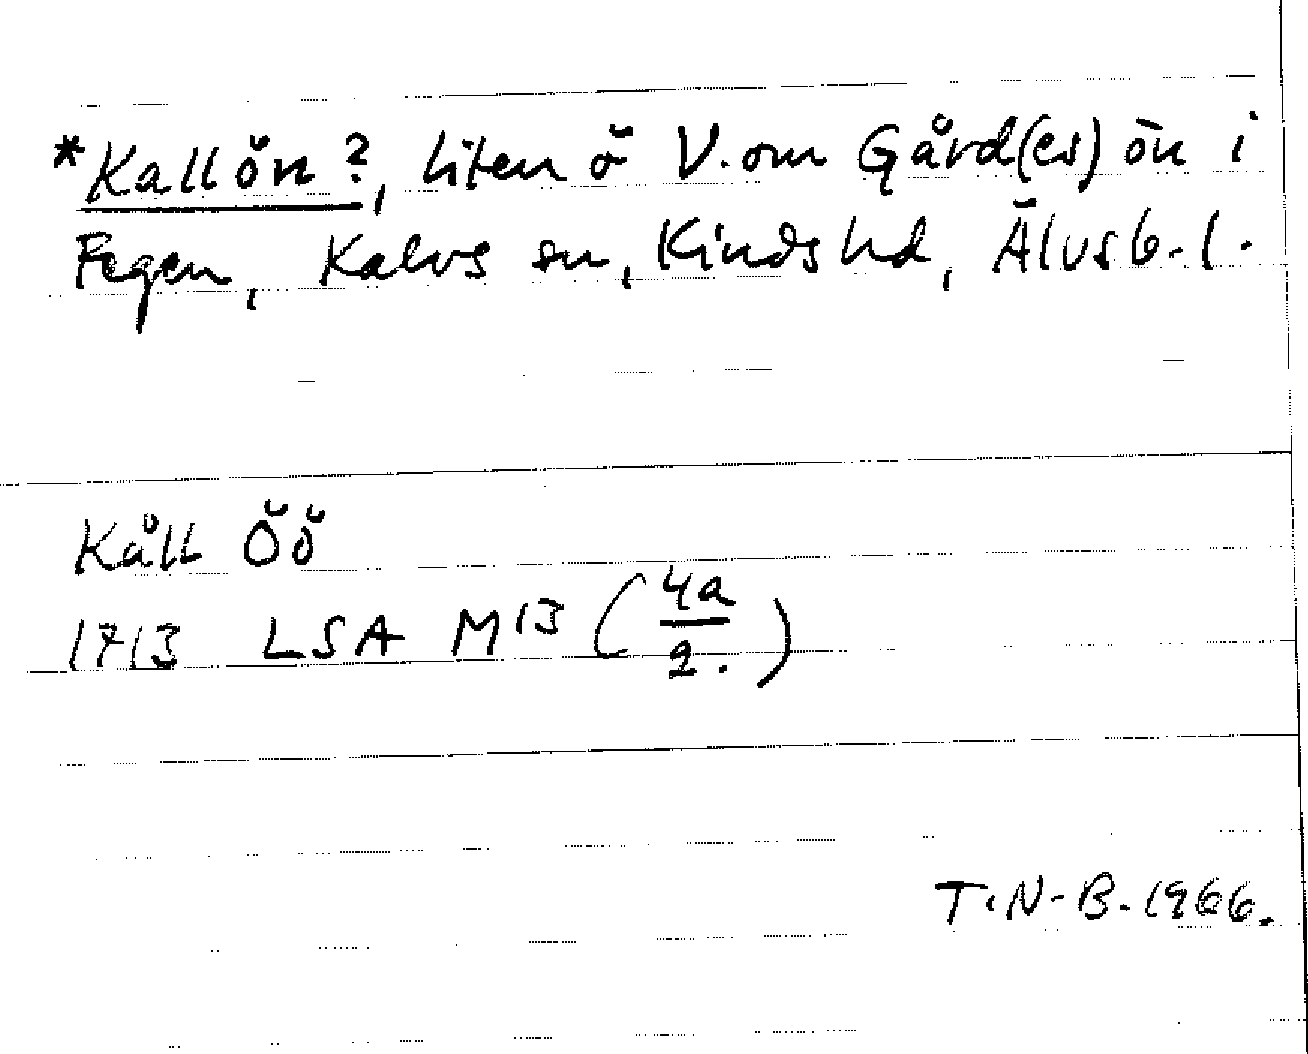 *Kallön?, liten ö V. om Gård(es)ön i
Fegen, Kalvs sn, Kinds hd, Älvsb. l.
Kåll Öö
1713 LSA M13 (4a/2.)
T.N-B. 1966.